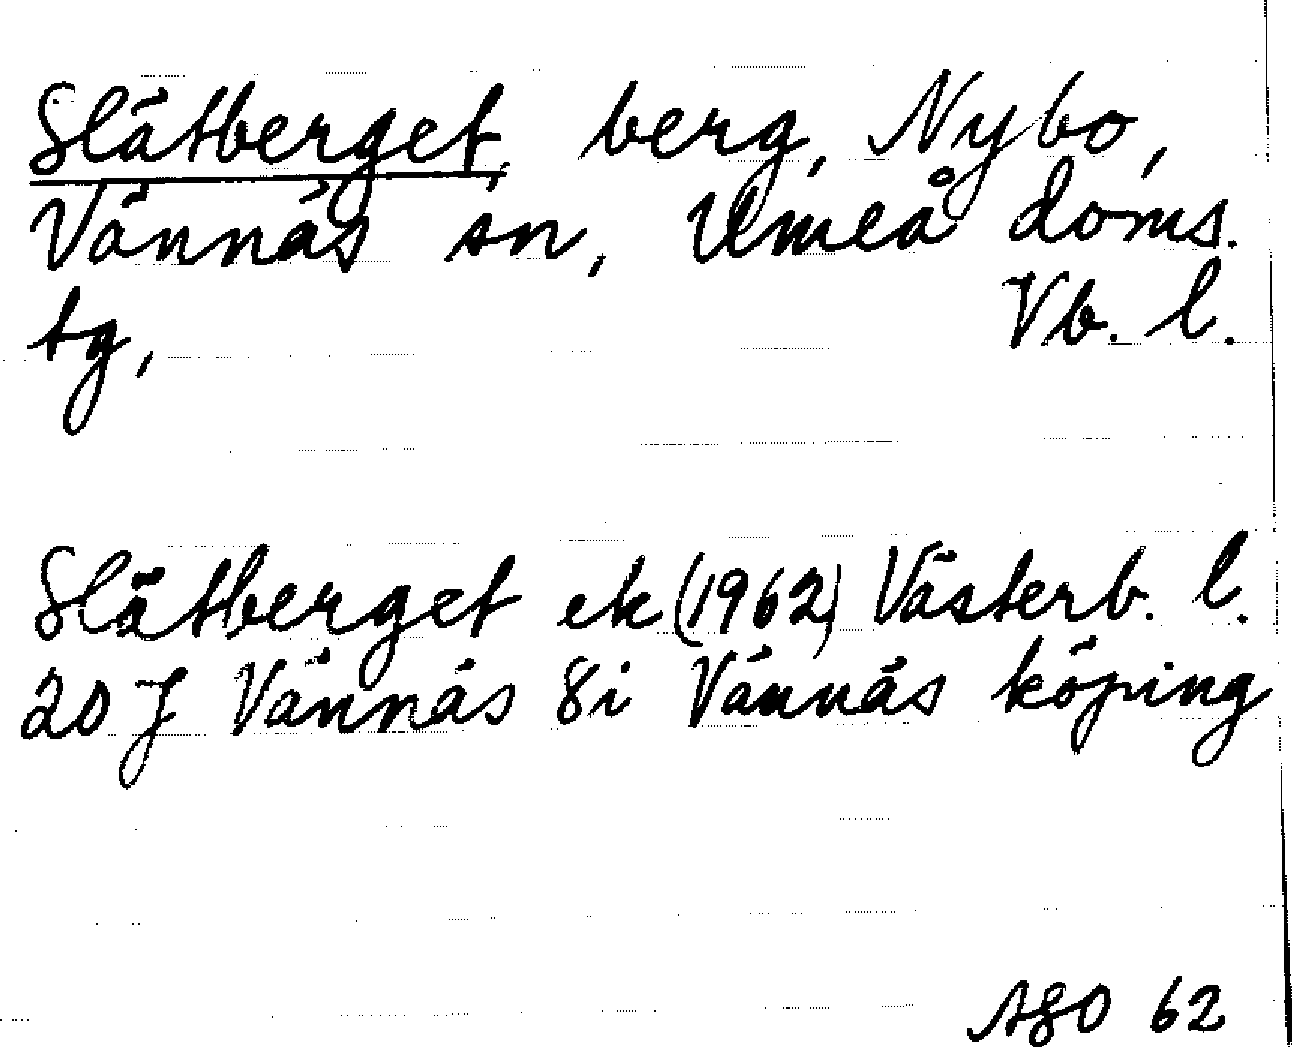 Slätberget, berg, Nybo,
Vännäs sn, Umeå doms.
tg, Vb. l.
Slätberget ek (1962) Västerb. l.
20 J Vännäs 8i Vännäs köping
ASO 62